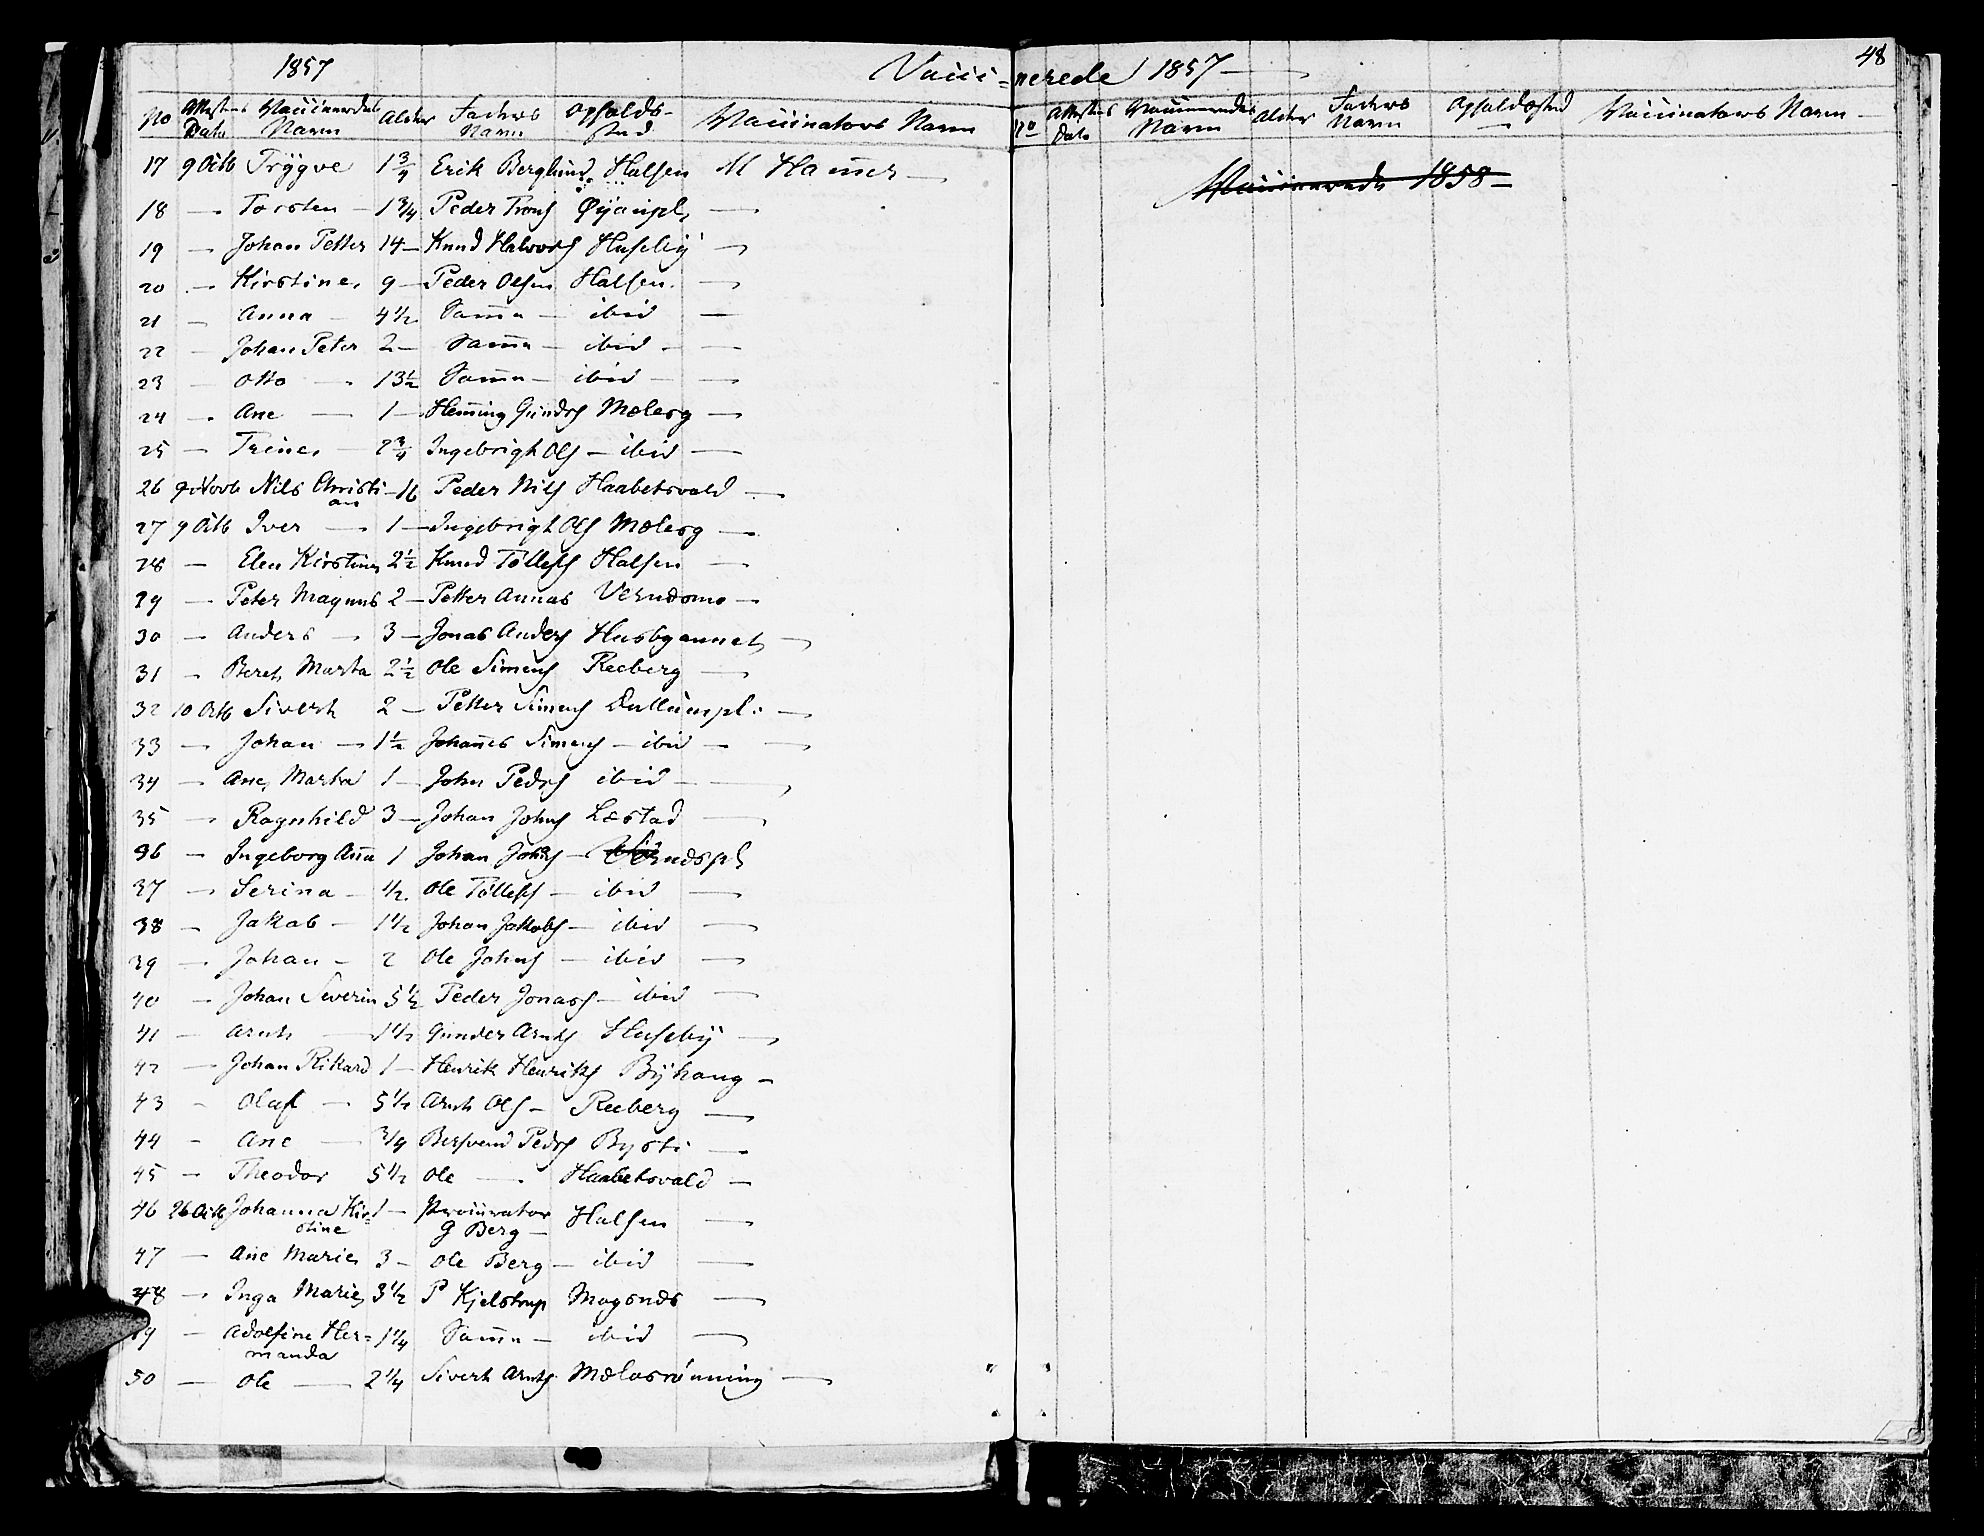 1857 Vacci-
No Attestens Dato Vaccineredes Navn Alder Faders Navn Opholds-sted Vaccinators Navn
17 9 Octb Trÿgve 1 3/4 Erik Berglund Halsen M Hamer —
18 — Torsten — 1 3/4 Peder Trons Øÿanpl, —
19 — Johan Petter 14 — Knud Halvors Husebÿ —
20 — Kirstine 9 — Peder Olsen Halsen —
21 — Anna — 4 1/2 Sam̄e — ibid —
22 — Johan Peter 2 — Sam̄e — ibid — —
23 — Otto — 13 1/2 Sam̄e — ibid — —
24 — Ane — 1 — Hem̄ing Gundrs —
25 — Trine — 2 3/4 Ingebrigt Ols — ibid —
26 9 Novb Nils Christi-
an — 16 Peder Nils Haabetsvald —
27 9 Octb Iver — 1 — Ingebrigt Ols —
28 — Elen Kirstine 2 1/2 Knud Tollefs Halsen —
29 — Peter Magnus 2 — Petter Annas —
30 — Anders — 3 — Jonas Anders Husbyaunet —
31 — Beret Marta 2 1/2 Ole Simens Reeberg —
32 10 Octb Sivert 2 — Petter Simens —
33 — Johan — 1 1/2 Johan̄es Simens — ibid — —
34 — Ane Marta 1 — John Peders ibid — —
35 — Ragnhild 3 — Johan Johns Læstad —
36 — Ingeborg An̄a 1 Johan Johns —
37 — Serina — 1/2 Ole Tollefs — ibid —
38 — Jakob — 1 1/2 Johan Jakobs — ibid —
39 — Johan — 2 Ole Johns — ibid —
40 — Johan Severin 5 1/2 Peder Jonass — ibid —
41 — Arnt — 1 1/2 Gunder Arnts Husebÿ —
42 — Johan Rikard 1 — Henrik Henriks Bÿhaug —
43 — Olaf — 5 1/2 Arnt Ols — Reeberg —
44 — Ane — 3/4 Bersvend Peders Bysti —
45 — Theodor 5 1/2 Ole — Haabetsvald —
46 26 Octb Johanna Kir-
stine 1 — Procurator
G Berg — Halsen —
47 — Ane Marie 3 — Ole Berg — ibid —
48 — Inga Marie 3 1/2 P Kjelstrup Mogsnes —
49 — Adolfine Her=
manda 1 1/4 Sam̄e — ibid —
50 — Ole — 2 1/4 Sivert Arnts Mælasrönning —
nerede 1857 — 48
No Attestens Dato Vaccineredes Navn Alder Faders Navn Opholdssted Vaccinators Navn —
Vaccinerede 1858 —